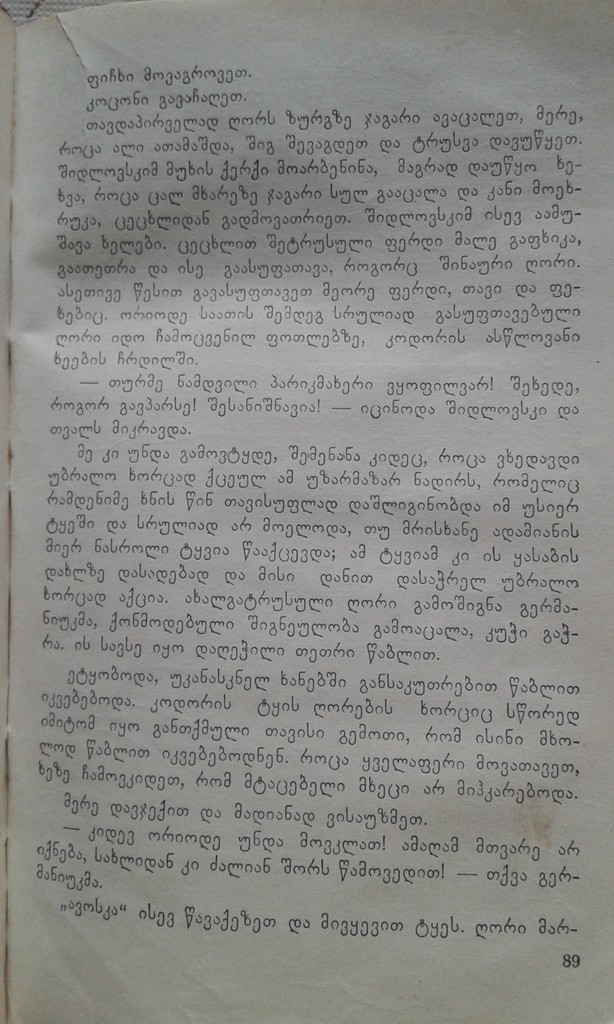 ფიჩხი მოვაგროვეთ.
კოცონი გავაჩაღეთ.
თავდაპირველად ღორს ზურგზე ჯაგარი ავაცალეთ, მერე,
როცა ალი ათამაშდა, შიგ შევაგდეთ და ტრუსვა დავუწყეთ.
შიდლოვსკიმ მუხის ქერქი მოარბენინა, მაგრად დაუწყო ხე-
ხვა, როცა ცალ მხარეზე ჯაგარი სულ გააცალა და კანი მოეხ-
რუკა, ცეცხლიდან გადმოვათრიეთ. შიდლოვსკიმ ისევ აამუ-
შავა ხელები. ცეცხლით შეტრუსული ფერდი მალე გაფხიკა,
გაათეთრა და ისე გაასუფათავა, როგორც შინაური ღორი.
ასეთივე წესით გავასუფთავეთ მეორე ფერდი, თავი და ფე-
ხებიც. ორიოდე საათის შემდეგ სრულიად გასუფთავებული
ღორი იდო ჩამოცვენილ ფოთლებზე, კოდორის ასწლოვანი
ხეების ჩრდილში.
— თურმე ნამდვილი პარიკმახერი ვყოფილვარ! შეხედე,
როგორ გავპარსე! შესანიშნავია! — იცინოდა შიდლოვსკი და
თვალს მიკრავდა.
მე კი უნდა გამოვტყდე, შემენანა კიდეც, როცა ვხედავდი
უბრალო ხორცად ქცეულ ამ უზარმაზარ ნადირს, რომელიც
რამდენიმე ხნის წინ თავისუფლად დაშლიგინობდა იმ უსიერ
ტყეში და სრულიად არ მოელოდა, თუ მრისხანე ადამიანის
მიერ ნასროლი ტყვია წააქცევდა; ამ ტყვიამ კი ის ყასაბის
დახლზე დასადებად და მისი დანით დასაჭრელ უბრალო
ხორცად აქცია. ახალგატრუსული ღორი გამოშიგნა გერმა-
ნიუკმა, ქონმოდებული შიგნეულობა გამოაცალა, კუჭი გაჭ-
რა. ის სავსე იყო დაღეჭილი თეთრი წაბლით.
ეტყობოდა, უკანასკნელ ხანებში განსაკუთრებით წაბლით
იკვებებოდა. კოდორის ტყის ღორების ხორციც სწორედ
იმიტომ იყო განთქმული თავისი გემოთი, რომ ისინი მხო-
ლოდ წაბლით იკვებებოდნენ. როცა ყველაფერი მოვათავეთ,
ხეზე ჩამოვკიდეთ, რომ მტაცებელი მხეცი არ მიჰკარებოდა.
მერე დავჯექით და მადიანად ვისაუზმეთ.
— კიდევ ორიოდე უნდა მოვკლათ! ამაღამ მთვარე არ
იქნება, სახლიდან კი ძალიან შორს წამოვედით! — თქვა გერ-
მანიუკმა.
„ავოსკა“ ისევ წავაქეზეთ და მივყევით ტყეს. ღორი მარ-
89